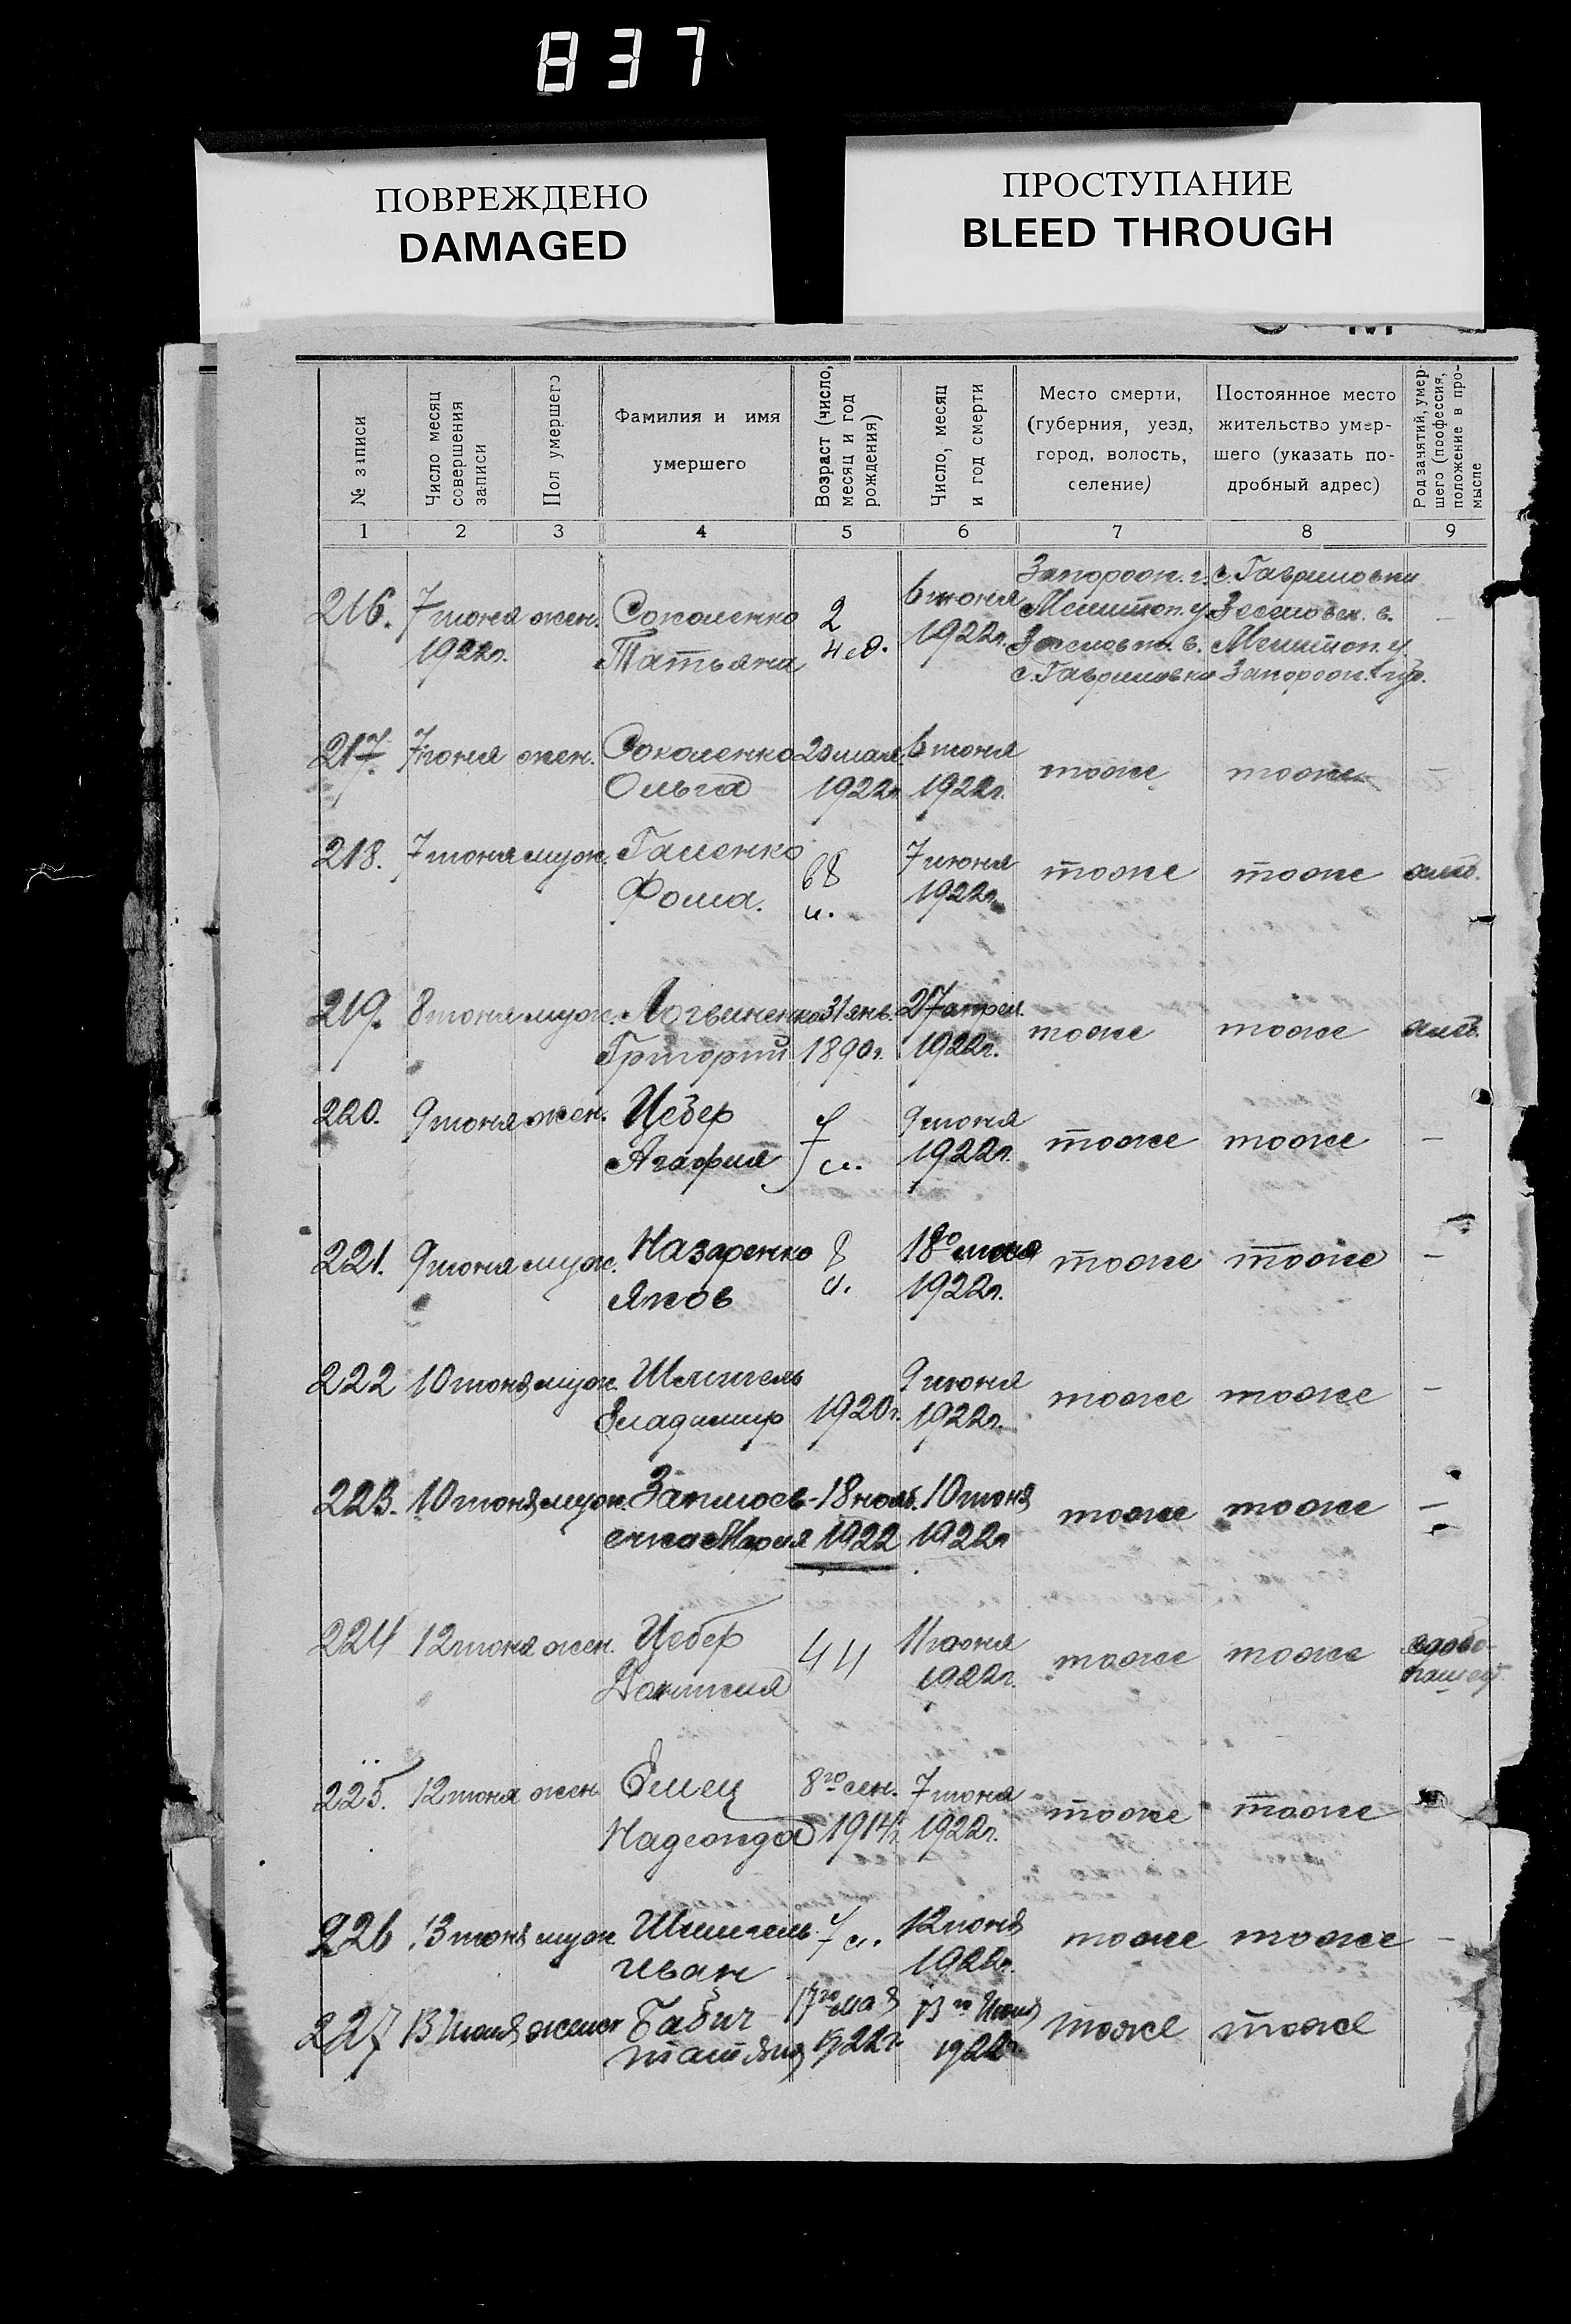 837
ПОВРЕЖДЕНО
DAMAGED
ПРОСТУПАНИЕ
BLEED THROUGH
№ записи
Число месяц совершения записи
Пол умершего
Фамилия и имя умершего
Возраст (число, месяц и год рождения)
Число, месяц и год смерти
Место смерти, (губерния, уезд, город, волость, селение)
Постоянное место жительство умершего (указать подробный адрес)
Род занятий, умершего (профессия, положение в промысле
1 2 3 4 5 6 7 8 9
216. 7 июня жен. Соколенко 2 6 июня Запорож. г. с. Гавриловки
1922г. Татьяна нед. 1922г. Мелитоп. у.
Мелитоп. у.
с. Гавриловка Запорож. губ.
217. 7 июня жен. Соколенко 20 мая 6 июня
Ольга 1922г. 1922г. тоже тоже —
218. 7 июня муж. Галенко 68 7 июня тоже тоже
Фома. л. 1922г.
219. 8 июня муж. Логвиненко 31 янв. 27 апрел. тоже тоже
Григорий 1890г. 1922г.
220. 9 июня жен. Цебер 7 9 июня тоже тоже —
Агафия л. 1922г.
221. 9 июня муж. Назаренко 8 18го тоже тоже —
Яков л. 1922г.
222 10 июня муж. 9 июня тоже тоже —
Владимир 1920г. 1922г.
223. 10 июня муж. 10 июня тоже тоже —
Мария 1922 1922г
224 12 июня жен. Цебер 44 11 июня тоже тоже
1922г.
225. 12 июня жен. Емец 8го сен. 7 июня тоже тоже
Надежда 1914г. 1922г.
226 13 июня муж. 7 л. 12 июня тоже тоже —
Иван 1922г.
227 13 Июня женск Бабич 17го мая 13го Июня тоже тоже
Татьяна 1922г. 1922г